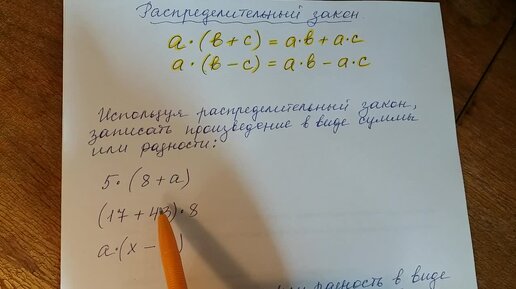 Распределительный закон
a·(b+c)=a·b+a·c
a·(b-c)=a·b-a·c
Используя распределительный закон,
записать произведение в виде суммы
или разности:
5·(8+a)
(17+43)·8
a·(x-
разность в виде